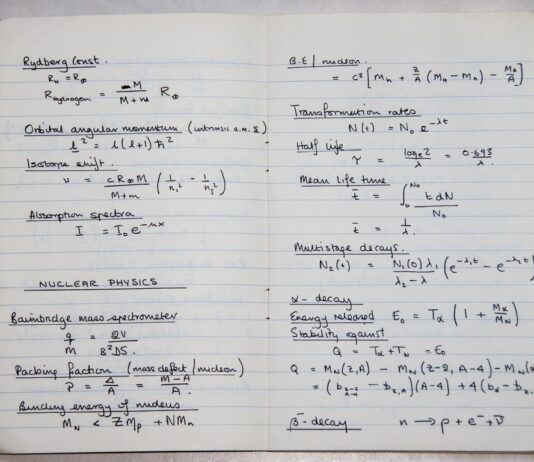 Rydberg Const.
R_H = R_∞
R_hydrogen = M / M+m R_∞
Orbital angular momentum (intrinsic a.m. s)
l² = l(l+1)ħ²
Isotope shift.
ν = cR_∞M / M+m (1/n₂² - 1/n₁²)
Absorption spectra
I = I₀e^-μx
NUCLEAR PHYSICS
Bainbridge mass spectrometer
q/m = 2V / B²DS.
Packing fraction (mass defect/nucleon)
P = Δ/A = M-A / A
Binding energy of nucleus
M_N < ZM_p + NM_n
B.E/nucleon.
= c² [M_n + Z/A (M_H - M_n) - M_A/A]
Transformation rates
N(t) = N₀ e^-λt
Half life
τ = log_e 2 / λ = 0.693 / λ.
Mean life time
t̄ = ∫₀^N₀ t dN / N₀
t̄ = 1/λ.
Multistage decays.
N₂(t) = N₁(0)λ₁ / λ₂-λ (e^-λ₁t - e^-λ₂t)
α-decay
Energy released E₀ = T_α (1 + M_α/M_N)
Stability against
Q = T_α + T_N = E₀
Q = M_N(Z,A) - M_N(Z-2, A-4) - M_N(
= (b_Z-2,A-4 - b_Z,A)(A-4) + 4(b_α - b_Z,
β⁻-decay n → p + e⁻ + ν̄